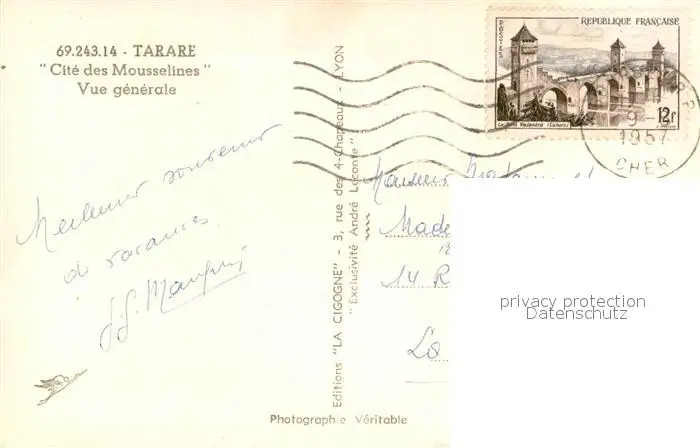 69.243.14 - TARARE
"Cité des Mousselines"
Vue générale
Meilleur souvenir
de vacances
Editions "LA CIGOGNE" - 3, rue des 4-Chapeaux - LYON
"Exclusivité André Leconte"
Photographie Véritable
POSTES
REPUBLIQUE FRANÇAISE
Le Pont Valentré (Cahors)
12f
9-
1957
CHER
Monsieur Madame et
Made
14 R
La
privacy protection
Datenschutz